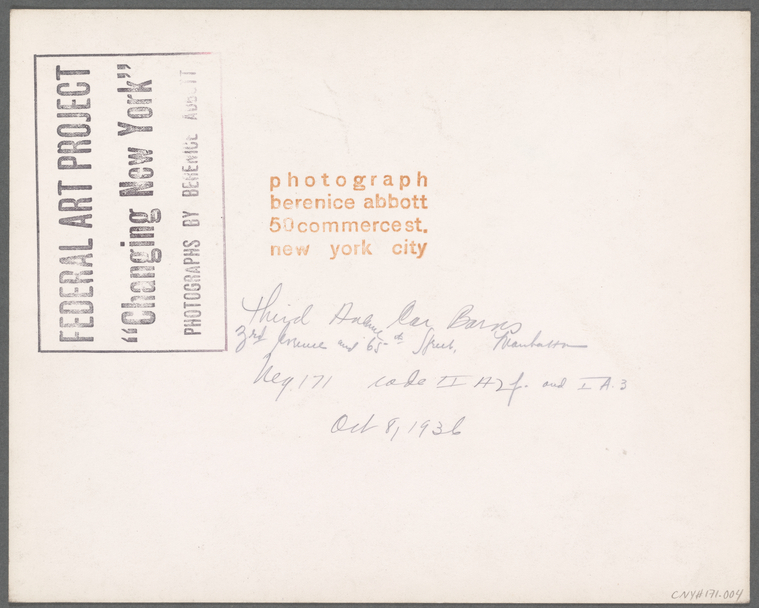 FEDERAL ART PROJECT
"Changing New York"
PHOTOGRAPHS BY BERENICE ABBOTT
photograph
berenice abbott
50 commerce st.
new york city
Third Avenue Car Barns
3rd Avenue and 65th Street, Manhattan
Neg. 171 code II H2f. and I A.3
Oct 8, 1936
CNY#171.004